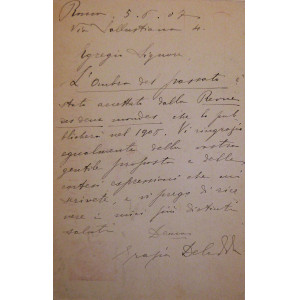 Roma, 3. 6. 07
Via Sallustiana 4.
Egregio Signore
L'Ombra del passato è
stato accettato dalla Revue
des deux mondes, che lo pub
blicherà nel 1908. Vi ringrazio
egualmente della vostra
gentile proposta e delle
cortesi espressioni che mi
scrivete, e vi prego di rice
vere i miei più distinti
saluti.
Devma
Grazia Deledda